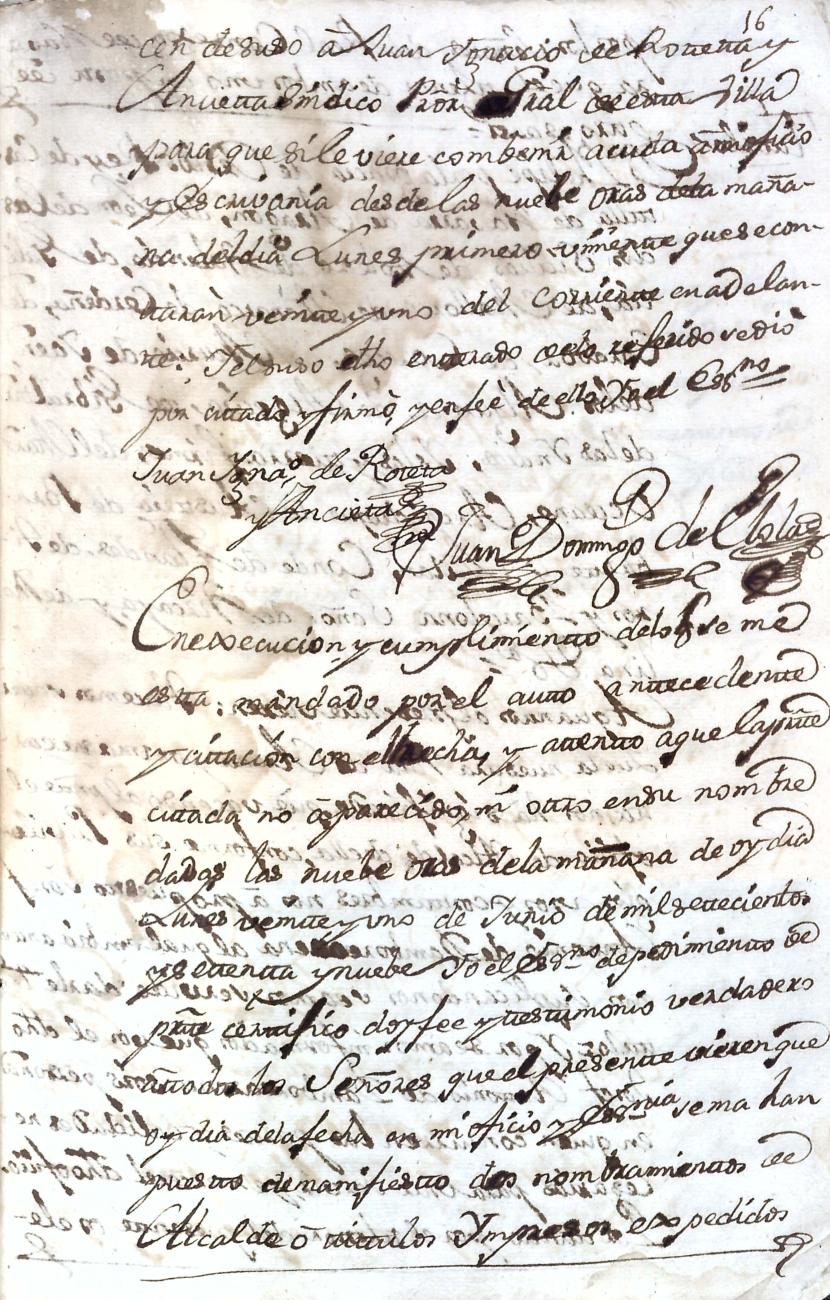 16
cen de suso â Juan Ygnacio de Rotetta y
Ancietta Sindico Pror Gral de esta Villa
para que si le viere combenir acuda â mi oficio
y Escrivanía desde las nuebe oras dela maña-
na del dia Lunes primero viniente que se con-
ttaran veinte y uno del corriente en adelan-
te; Y el suso dho enterado de lo referido se dio
por cittado, y firmò, y en feè de ello Yo el Essno
Juan Ygnao de Roteta
y Ancieta
Juan Domingo de Elola
En execucion y cumplimientto delo q se me
estta mandado por el auto anttecedentte
y cittación con el hecha, y attentto a que la partte
cittada no â parecido, ni ottro en su nombre
dadas las nuebe oras de la mañana de oy dia
Lunes veintte y uno de Junio de mil settecientos
y settentta y nuebe Yo el Essno de pedimiento de
partte certtifico doy fee y testimonio verdadero
attodos los Señores que el presentte vieren que
oy dia de la fecha en mi oficio y Essnia se me han
puestto de manifiestto dos nombramienttos de
Alcalde ô tittulos Ympresos expedidos